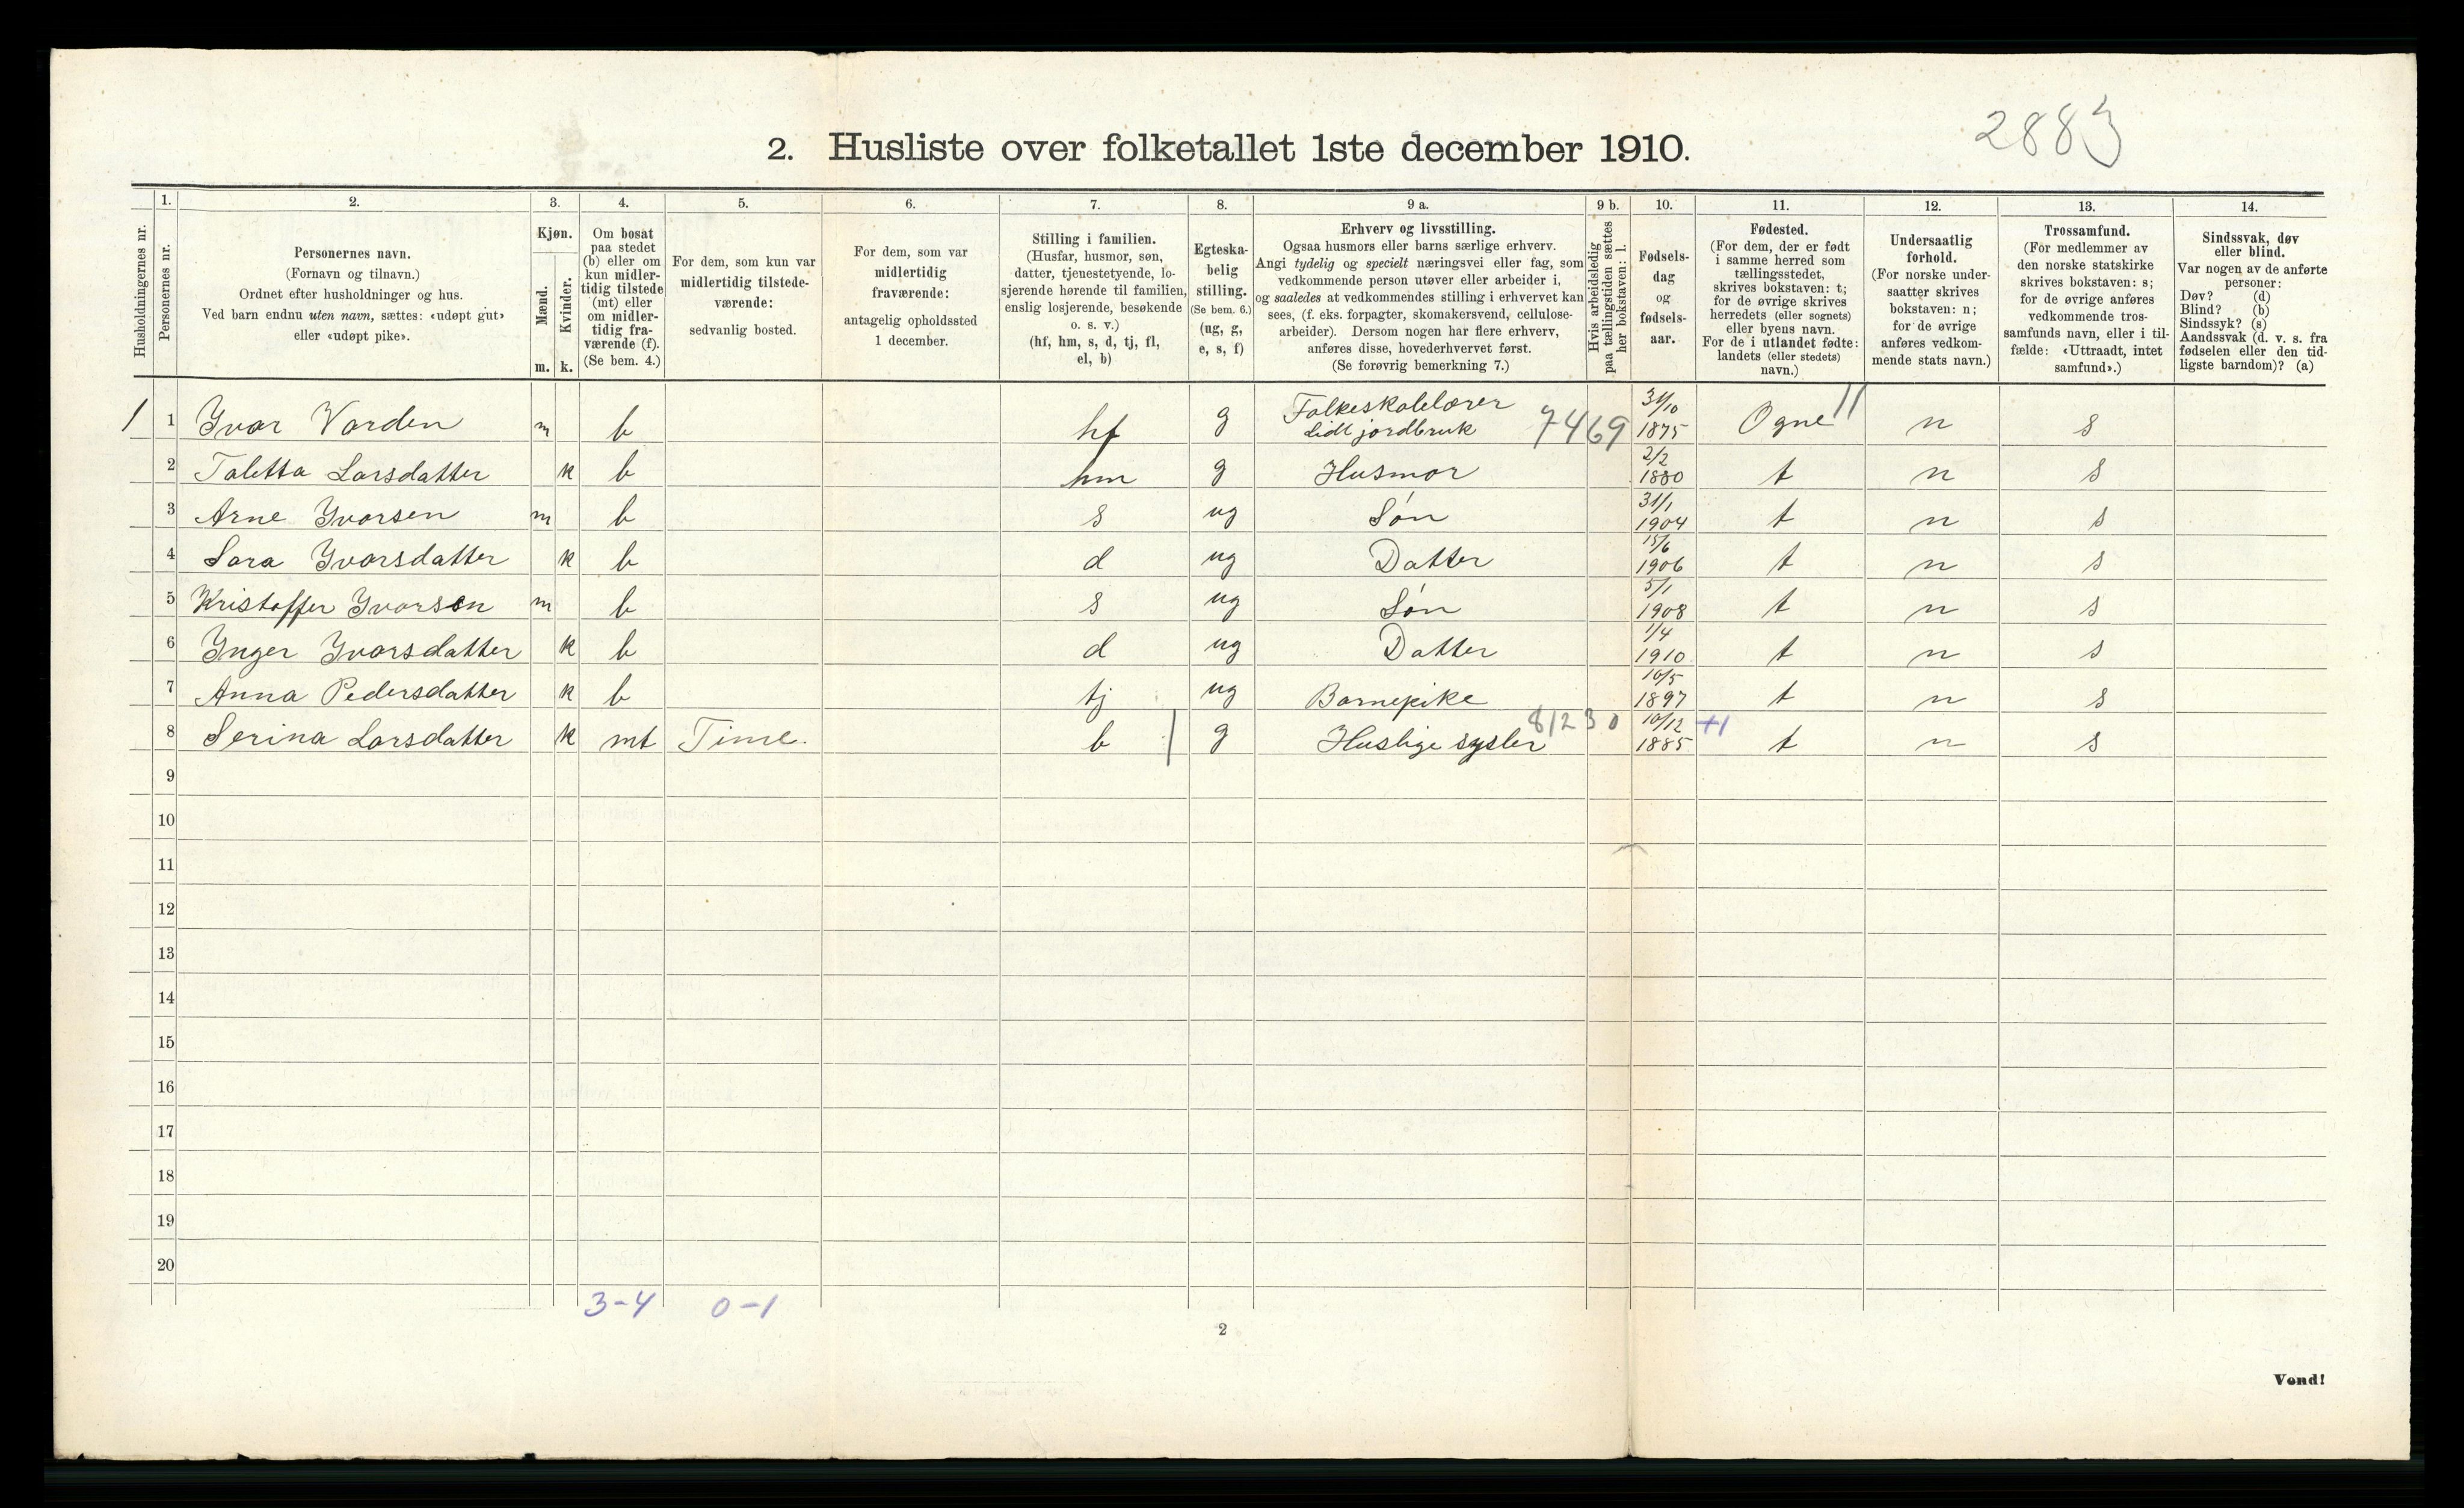 2883
2. Husliste over folketallet 1ste december 1910.
Husholdningernes nr.
1.
Personernes nr.
2.
Personernes navn.
(Fornavn og tilnavn.)
Ordnet efter husholdninger og hus.
Ved barn endnu uten navn, sættes: «udøpt gut»
eller «udøpt pike».
3.
Kjøn.
Mænd.
Kvinder.
m. k.
4.
Om bosat
paa stedet
(b) eller om
kun midler-
tidig tilstede
(mt) eller
om midler-
tidig fra-
værende (f).
(Se bem. 4.)
5.
For dem, som kun var
midlertidig tilstede-
værende:
sedvanlig bosted.
6.
For dem, som var
midlertidig
fraværende:
antagelig opholdssted
1 december.
7.
Stilling i familien.
(Husfar, husmor, søn,
datter, tjenestetyende, lo-
sjerende hørende til familien,
enslig losjerende, besøkende
o. s. v.)
(hf, hm, s, d, tj, fl,
el, b)
8.
Egteska-
belig
stilling.
(Se bem. 6.)
(ug, g,
e, s, f)
9 a.
Erhverv og livsstilling.
Ogsaa husmors eller barns særlige erhverv.
Angi tydelig og specielt næringsvei eller fag, som
vedkommende person utøver eller arbeider i,
og saaledes at vedkommendes stilling i erhvervet kan
sees, (f. eks. forpagter, skomakersvend, cellulose-
arbeider). Dersom nogen har flere erhverv,
anføres disse, hovederhvervet først.
(Se forøvrig bemerkning 7.)
9 b.
Hvis arbeidsledig
paa tællingstiden sættes
her bokstaven: l.
10.
Fødsels-
dag
og
fødsels-
aar.
11.
Fødested.
(For dem, der er født
i samme herred som
tællingsstedet,
skrives bokstaven: t;
for de øvrige skrives
herredets (eller sognets)
eller byens navn.
For de i utlandet fødte:
landets (eller stedets)
navn.)
12.
Undersaatlig
forhold.
(For norske under-
saatter skrives
bokstaven: n;
for de øvrige
anføres vedkom-
mende stats navn.)
13.
Trossamfund.
(For medlemmer av
den norske statskirke
skrives bokstaven: s;
for de øvrige anføres
vedkommende tros-
samfunds navn, eller i til-
fælde: «Uttraadt, intet
samfund».)
14.
Sindssvak, døv
eller blind.
Var nogen av de anførte
personer:
Døv? (d)
Blind? (b)
Sindssyk? (s)
Aandssvak (d. v. s. fra
fødselen eller den tid-
ligste barndom)? (a)
1 1 Yvar Varden m b hf g Folkeskolelærer Lidt jordbruk 7469 31/10 1875 Ogne 11 n s
2 Taletta Larsdatter k b hm g Husmor 2/2 1880 t n s
3 Arne Yvarsen m b s ug Søn 31/1 1904 t n s
4 Sara Yvarsdatter k b d ug Datter 15/6 1906 t n s
5 Kristoffer Yvarsen m b s ug Søn 5/1 1908 t n s
6 Inger Yvarsdatter k b d ug Datter 1/4 1910 t n s
7 Anna Pedersdatter k b tj ug Barnepike 10/5 1897 t n s
8 Serina Larsdatter k mt Time. b g Huslige sysler 81230 10/12 1885 +1 t n s
9
10
11
12
13
14
15
16
17
18
19
20
3-4 0-1
2
Vend!